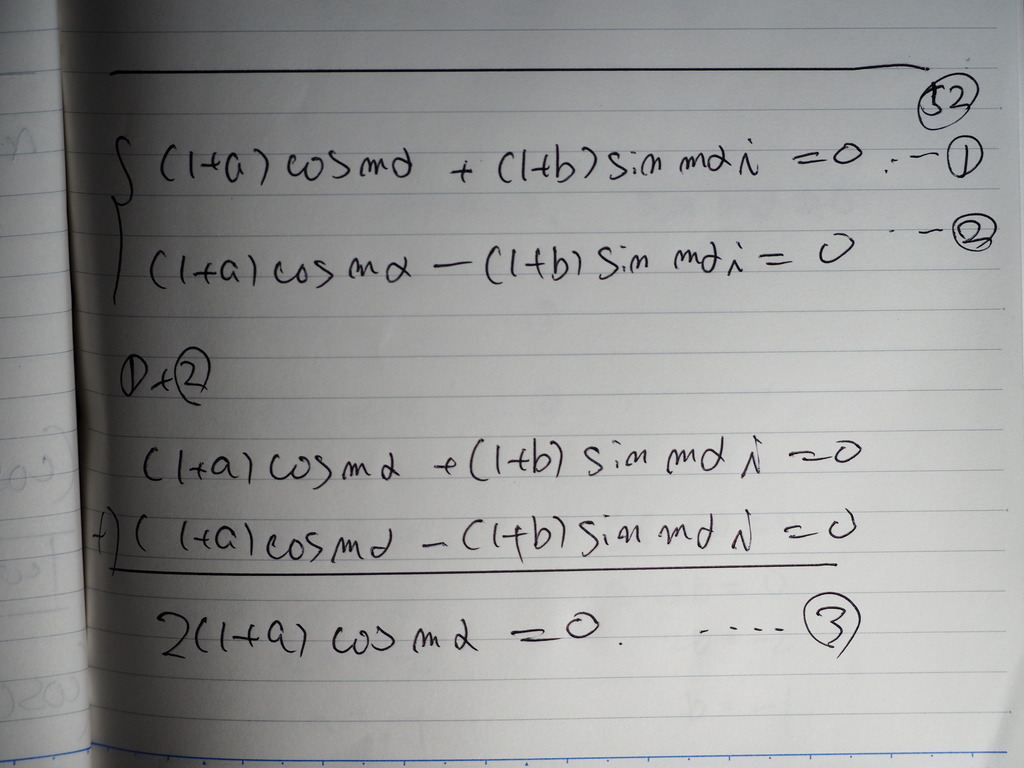 52
(1+a) cos mα + (1+b) sin mα i = 0 ... ①
(1+a) cos mα - (1+b) sin mα i = 0 ... ②
①+②
(1+a) cos mα + (1+b) sin mα i = 0
+) (1+a) cos mα - (1+b) sin mα i = 0
2(1+a) cos mα = 0. ..... ③